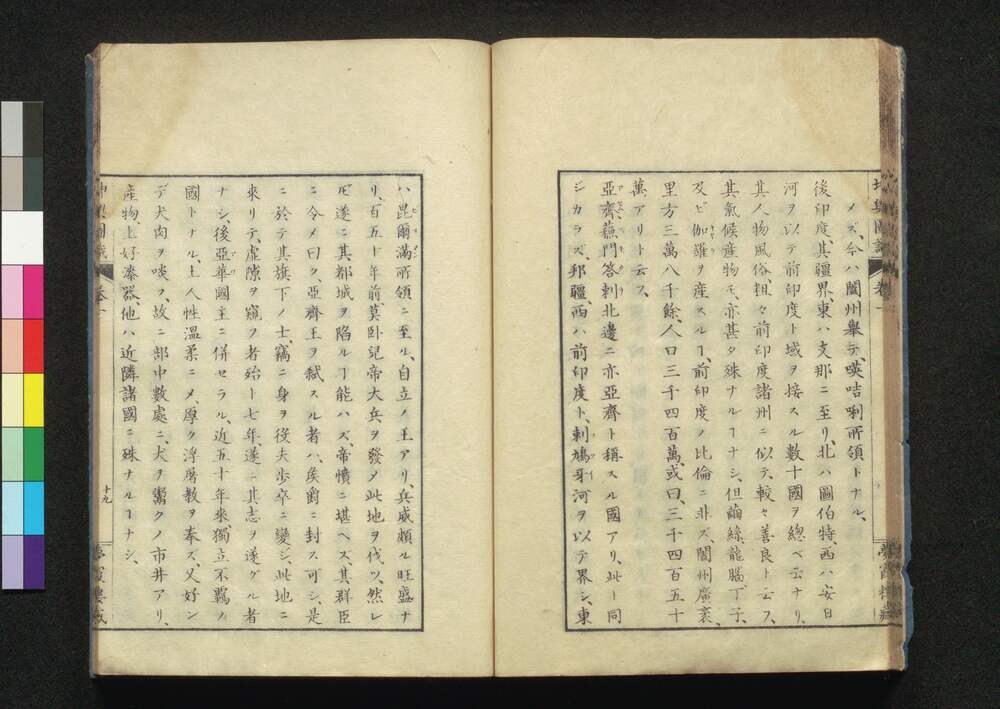 メズ、今ハ闔州擧テ、𠸄咭唎所領トナル、
後印度、其疆界東ハ支那ニ至リ、北ハ圖伯特、西ハ安日
河ヲ以テ前印度ト域ヲ接スル數十國ヲ總ベ云ナリ、
其人物風俗、粗々前印度諸州ニ似テ、較々善良ト云フ、
其氣候産物モ、亦甚タ殊ナルヿナシ、但繭絲、龍腦、丁子、
及ビ伽羅ヲ産スルヿ、前印度ノ比倫ニ非ズ、闔州廣袤、
里方三萬八千餘、人口三千四百萬、或曰、三千四百五十
萬アリト云ス、
亞齊、蘓門答剌北邊ニ亦亞齊ト稱スル國アリ、此ト同
シカラズ、邦疆、西ハ前印度ト、剌鳩牙河ヲ以テ界シ、東
ハ昆爾滿所領ニ至ル、自立ノ王アリ、兵威頗ル旺盛ナ
リ、百五十年前、莫卧兒帝大兵ヲ發メ此地ヲ伐ツ、然レ
𪜈遂ニ其都城ヲ陷ルヿ能ハズ、帝憤ニ堪ヘス、其群臣
ニ令メ曰ク、亞齊王ヲ弑スル者ハ、侯爵ニ封ス可シ、是
ニ於テ其旗下ノ士、竊ニ身ヲ役夫歩卒ニ變シ、此地ニ
來リテ、虛隙ヲ窺フ者殆ト七年、遂ニ其志ヲ遂グル者
ナシ、後亞華國主ニ併セラル、近五十年來、獨立不羈ノ
國トナル、土人性温柔ニメ、厚ク浮屠教ヲ奉ズ、又好ン
デ犬肉ヲ啖フ、故ニ部中數處ニ、犬ヲ鬻クノ市井アリ、
産物上好漆器、他ハ近隣諸國ニ殊ナルヿナシ、
十九